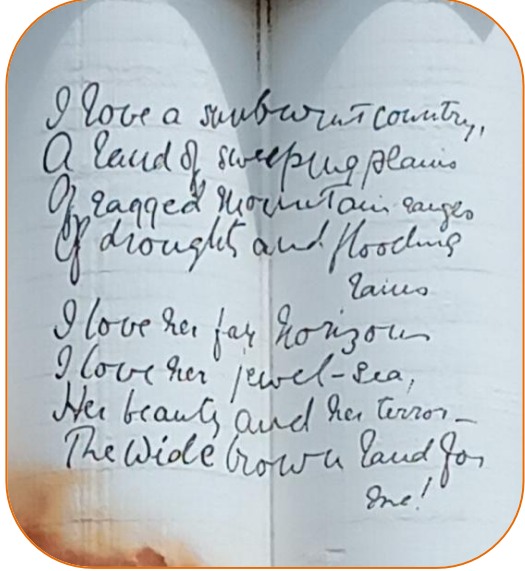 I love a sunburnt country,
A land of sweeping plains
Of ragged mountain ranges
Of droughts and flooding
rains
I love her far horizons
I love her jewel-sea,
Her beauty and her terror -
The Wide brown land for
me!